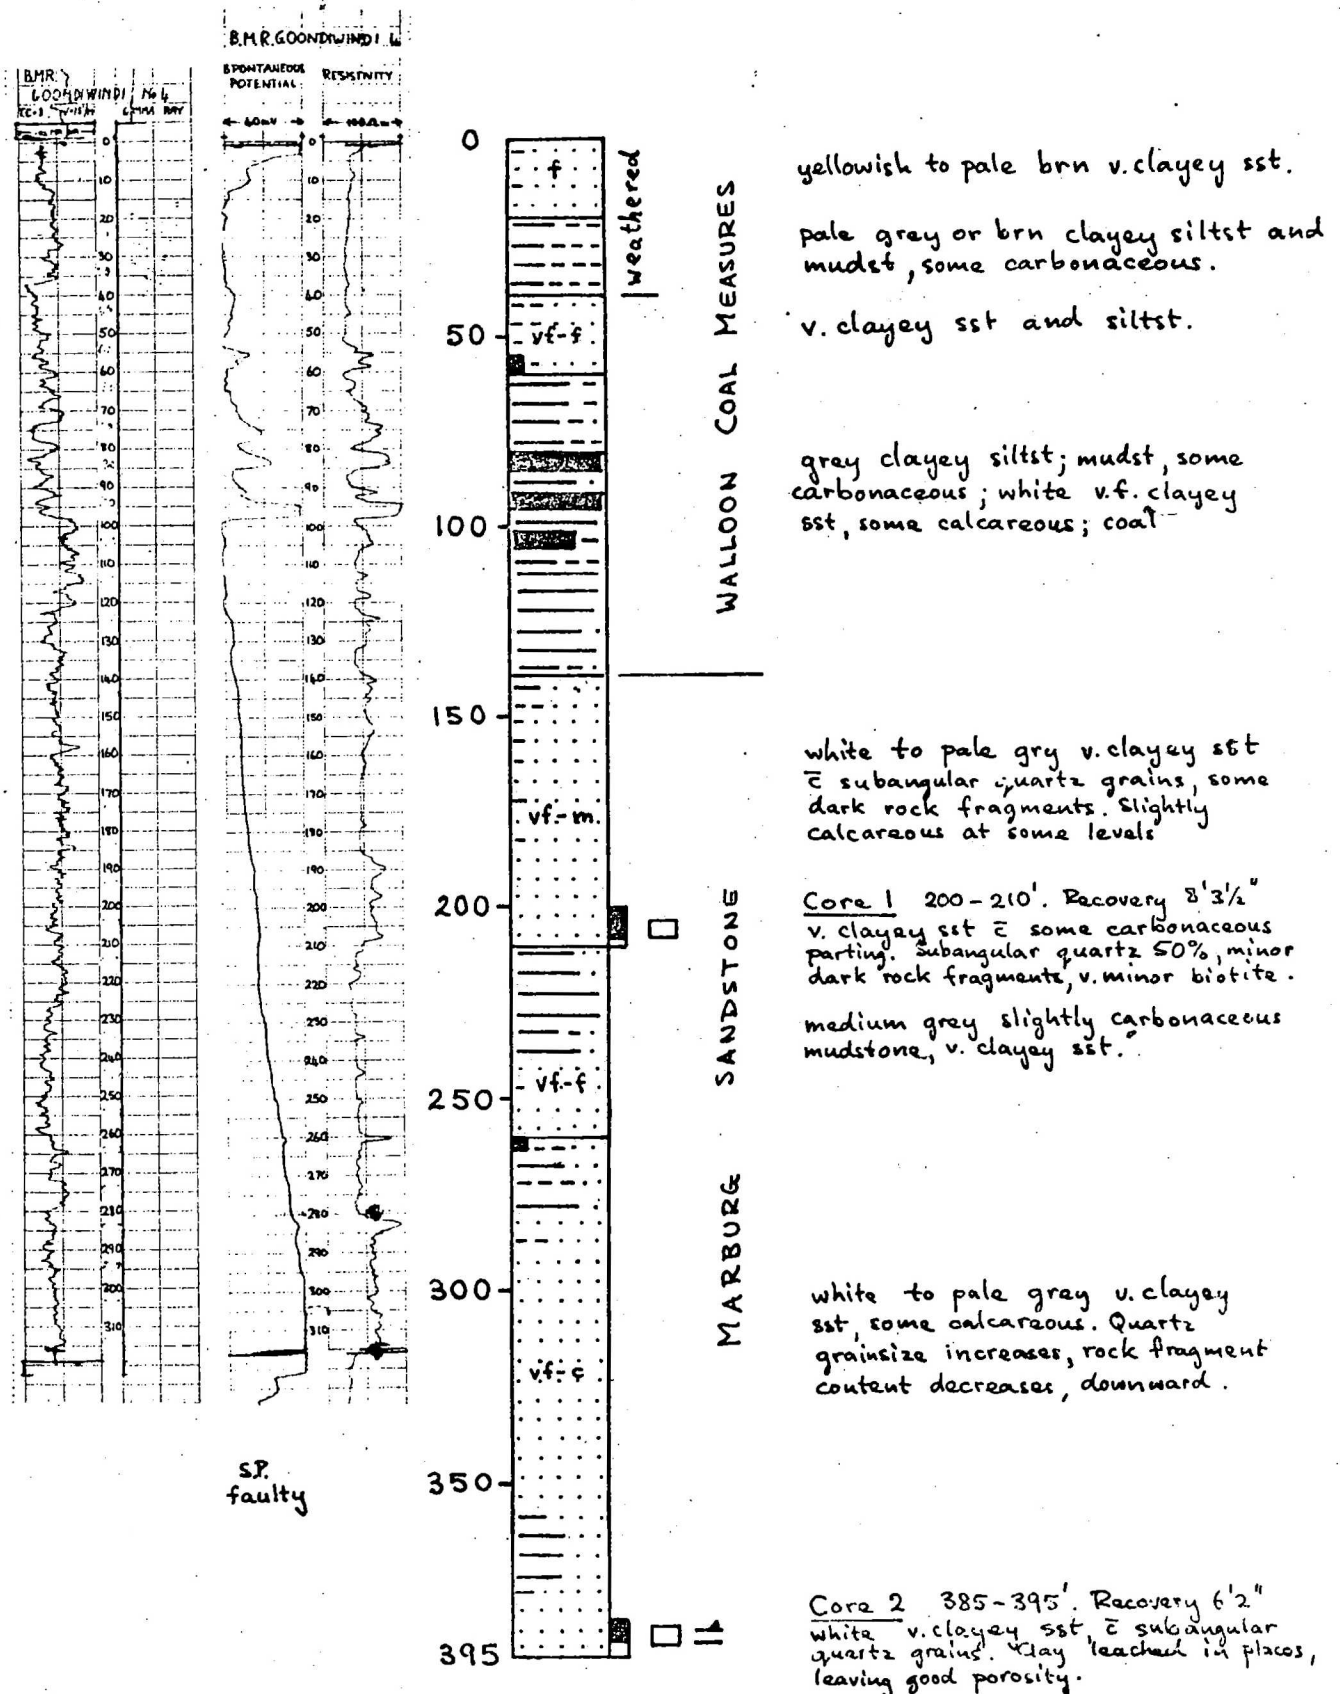 B.M.R. GOONDIWINDI 4
BMR
GOONDIWINDI No 4
GAMMA RAY
SPONTANEOUS
POTENTIAL
RESISTIVITY
60mV
100Ωm
0
10
20
30
40
50
60
70
80
90
100
110
120
130
140
150
160
170
180
190
200
210
220
230
240
250
260
270
280
290
300
310
0
10
20
30
40
50
60
70
80
90
100
110
120
130
140
150
160
170
180
190
200
210
220
230
240
250
260
270
280
290
300
310
S.P.
faulty
0
50
100
150
200
250
300
350
395
f
vf-f
vf-m
vf-f
vf-c
weathered
WALLOON COAL MEASURES
MARBURG SANDSTONE
yellowish to pale brn v.clayey sst.
pale grey or brn clayey siltst and
mudst, some carbonaceous.
v. clayey sst and siltst.
grey clayey siltst; mudst, some
carbonaceous; white v.f. clayey
sst, some calcareous; coal
white to pale gry v.clayey sst
c̄ subangular quartz grains, some
dark rock fragments. Slightly
calcareous at some levels
Core 1 200-210'. Recovery 8'3½"
v. clayey sst c̄ some carbonaceous
parting. Subangular quartz 50%, minor
dark rock fragments, v. minor biotite.
medium grey slightly carbonaceous
mudstone, v. clayey sst.
white to pale grey v. clayey
sst, some calcareous. Quartz
grainsize increases, rock fragment
content decreases, downward.
Core 2 385-395'. Recovery 6'2"
white v. clayey sst, c̄ subangular
quartz grains. Clay leached in places,
leaving good porosity.